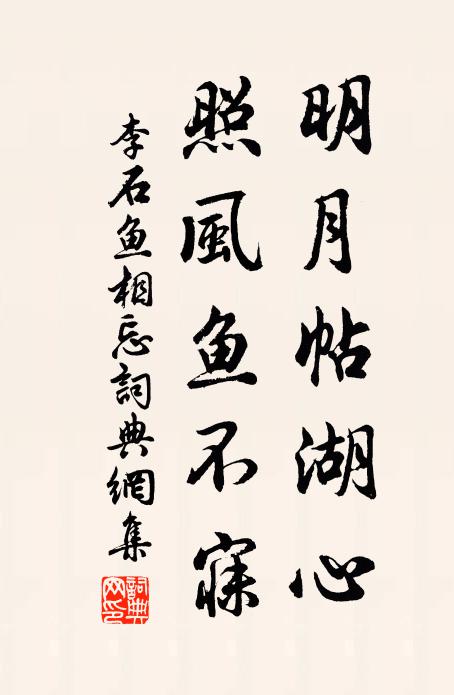 明月帖湖心
照風鱼不寐
李石鱼相忘詞典網集
詞典网印